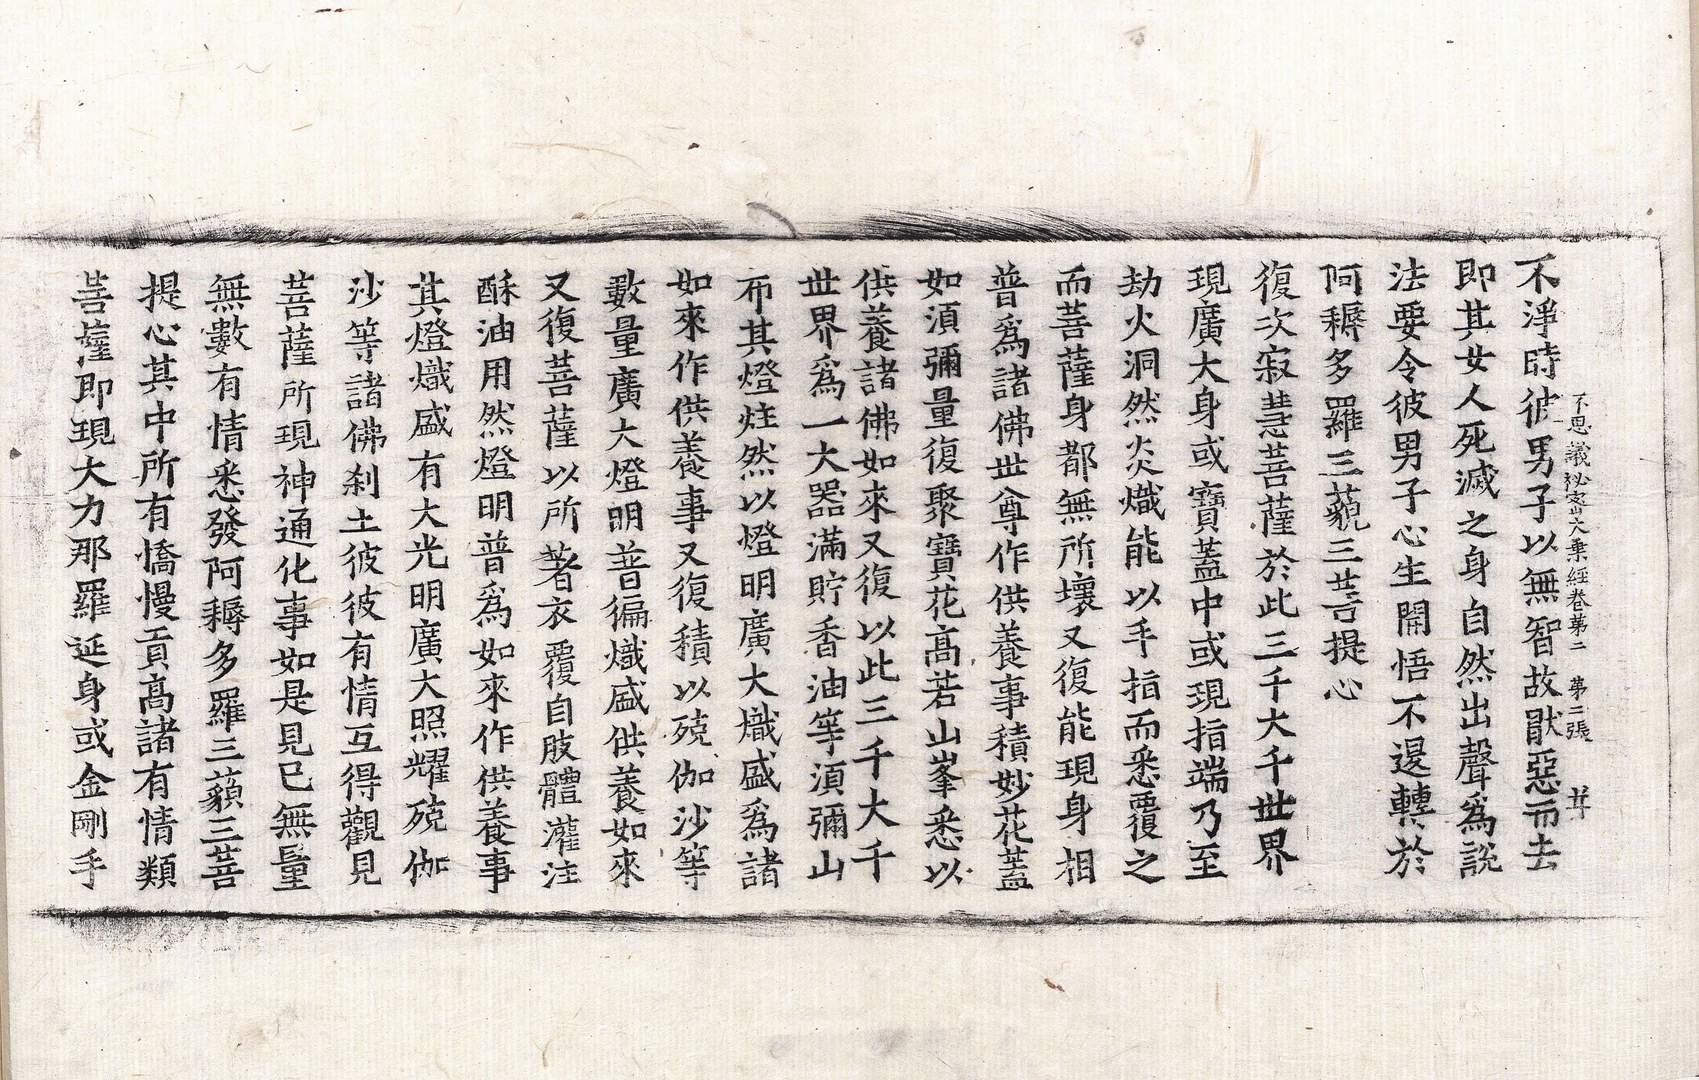 不思議秘密大乗經卷第二　第二張　茸
不淨時彼男子以無智故猒惡而去
即其女人死滅之身自然出聲爲說
法要令彼男子心生開悟不退轉於
阿耨多羅三藐三菩提心
復次寂慧菩薩於此三千大千世界
現廣大身或寶蓋中或現指端乃至
劫火洞然炎熾能以手指而悉覆之
而菩薩身都無所壞又復能現身相
普爲諸佛世尊作供養事積妙花蓋
如須彌量復聚寶花高若山峯悉以
供養諸佛如來又復以此三千大千
世界爲一大器滿貯香油等須彌山
布其燈炷然以燈明廣大熾盛爲諸
如來作供養事又復積以殑伽沙等
數量廣大燈明普徧熾盛供養如來
又復菩薩以所著衣覆自肢體灌注
酥油用然燈明普爲如來作供養事
其燈熾盛有大光明廣大照耀殑伽
沙等諸佛剎土彼彼有情互得觀見
菩薩所現神通化事如是見已無量
無數有情悉發阿耨多羅三藐三菩
提心其中所有憍慢貢高諸有情類
菩薩即現大力那羅延身或金剛手